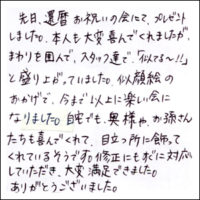 先日、還暦お祝いの会にて、プレゼント
しました。本人も大変喜んでくれましたが、
まわりを囲んで、スタッフ達で、「似てる～!!」
と盛り上がっていました。似顔絵の
おかげで、今まで以上に楽しい会に
なりました。自宅でも、奥様や、お孫さん
たちも喜んでくれて、目立つ所に飾って
くれているそうです。修正にもすぐに対応
していただき、大変満足できました。
ありがとうございました。